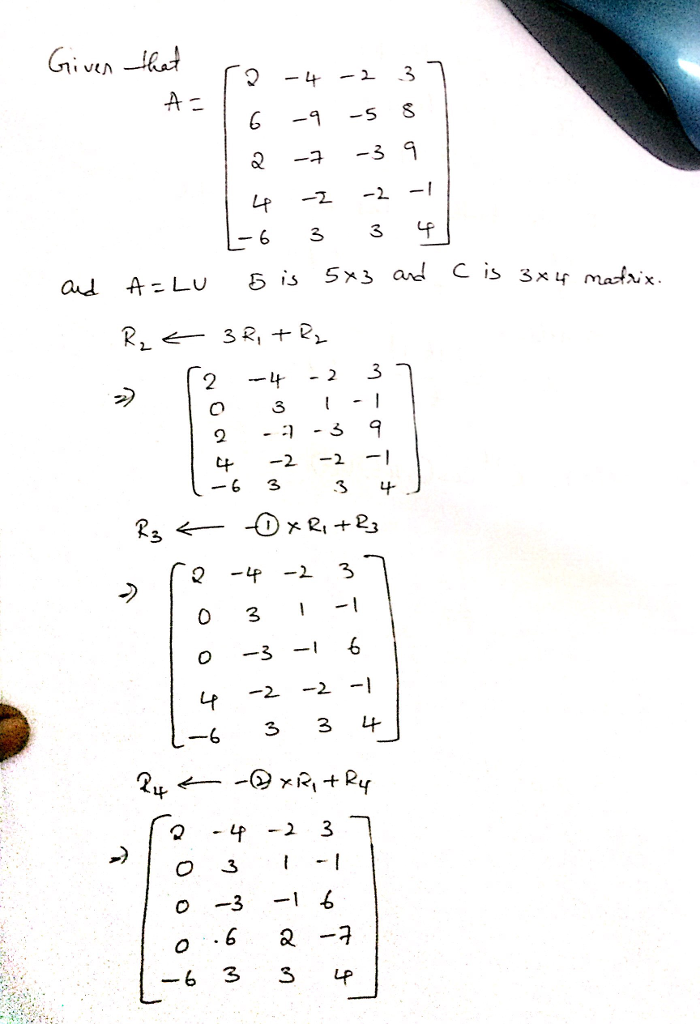 Given that
A = [ 2 -4 -2 3
6 -9 -5 8
2 -7 -3 9
4 -2 -2 -1
-6 3 3 4 ]
and A = LU B is 5×3 and C is 3×4 matrix.
R₂ ← 3R₁ + R₂
⇒ [ 2 -4 -2 3
0 3 1 -1
2 -7 -3 9
4 -2 -2 -1
-6 3 3 4 ]
R₃ ← -① × R₁ + R₃
⇒ [ 2 -4 -2 3
0 3 1 -1
0 -3 -1 6
4 -2 -2 -1
-6 3 3 4 ]
R₄ ← -② × R₁ + R₄
⇒ [ 2 -4 -2 3
0 3 1 -1
0 -3 -1 6
0 .6 2 -7
-6 3 3 4 ]